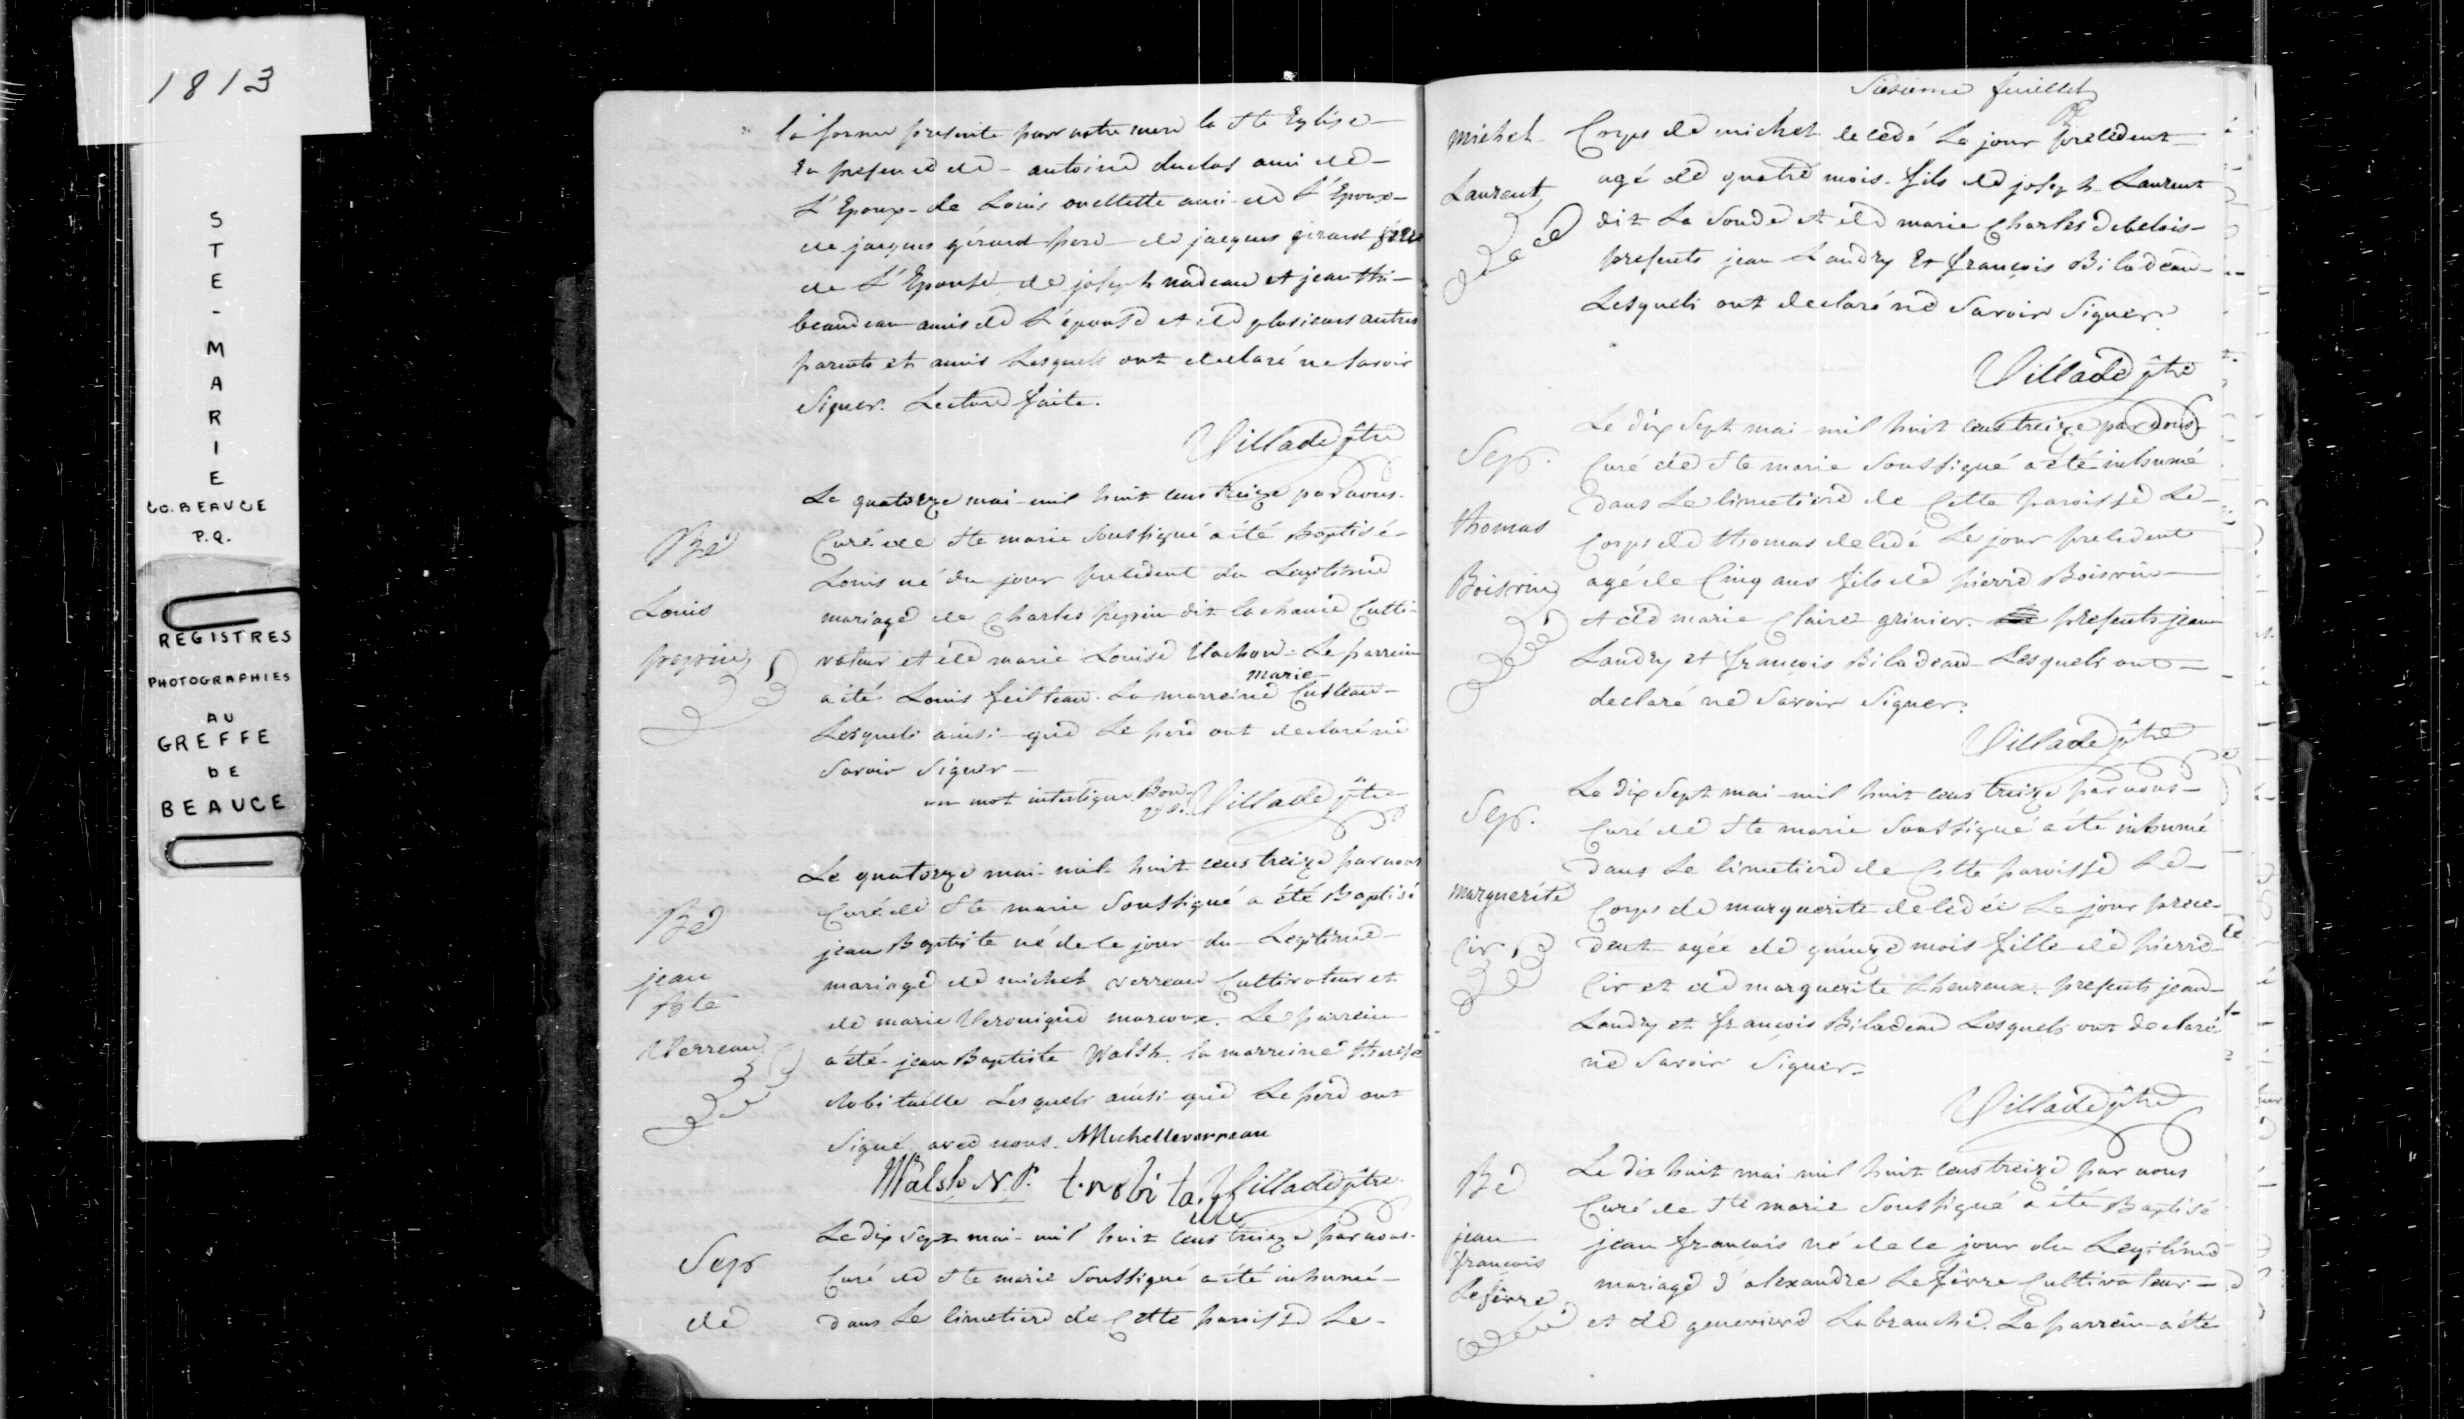 1813
STE-MARIE
CO. BEAUCE
P.Q.
REGISTRES
PHOTOGRAPHIES
AU
GREFFE
DE
BEAUCE
la forme presente par notre mere la Ste Eglise
En presence de antoine duclos ami de
L'Epoux de Louis ouellette ami de L'Epoux
de jacques gérard pere de jacques gerard frere
de L'Epouse de joseph nadeau et jean thi-
beaudeau amis de L'épouse et de plusieurs autres
parents et amis Lesquels ont declaré ne savoir
signer. Lecture faite.
Villade ptre
Le quatorze mai mil huit cens treize par nous
Bé
Curé de Ste marie soussigné a été Baptisé
Louis né du jour precedent du Legitime
Louis
mariage de Charles peppin dit lachance Culti-
peppin
vateur et de marie Louise Vachon. Le parrein
marie
a été Louis feilteau. La marreine Cusleau
Lesquels ainsi que Le pere ont declaré ne
savoir signer
un mot interligne Bon Villade ptre
Le quatorze mai mil huit cens treize par nous
Curé de Ste marie soussigné a été Baptisé
Bé
jean Baptiste né de ce jour du Legitime
jean
mariage de michel verreau Cultivateur et
Bte
de marie Veronique marcoux. Le parrein
Verreau
a été jean Baptiste Walsh. la marreine therese
Robitaille Lesquels ainsi que Le pere ont
signé avec nous. Michelleverreau
Walsh N.P. t. robitaille Villade ptre
Le dix sept mai mil huit cens treize par nous
Sep
Curé de Ste marie soussigné a été inhumé
de
dans Le cimetiere de Cette paroisse Le
Sixieme feuillet
michel
Corps de michel decedé Le jour precedent
agé de quatre mois fils de joseph Laurent
Laurent
dit La Sonde et de marie Charles debelois
presents jean Landry Et françois Biladeau
Lesquels ont declaré ne savoir signer.
Villade ptre
Le dix sept mai mil huit cens treize par nous
Sep.
Curé de Ste marie soussigné a été inhumé
dans Le cimetiere de Cette paroisse Le
thomas
Corps de thomas decedé Le jour precedent
Boisvin
agé de Cinq ans fils de pierre Boisvin
et de marie Claire grinier. presents jean
Landry et françois Biladeau Lesquels ont
declaré ne savoir signer.
Villade ptre
Le dix sept mai mil huit cens treize par nous
Sep.
Curé de Ste marie soussigné a été inhumé
dans Le cimetiere de Cette paroisse Le
marguerite
Corps de marguerite decedée Le jour prece-
Cir
dent agée de quinze mois fille de pierre
Cir et de marguerite Lheureux. presents jean
Landry et françois Biladeau Lesquels ont declaré
ne savoir signer.
Villade ptre
Le dix huit mai mil huit cens treize par nous
Bé
Curé de Ste marie soussigné a été Baptisé
jean
jean françois né de ce jour du Legitime
françois
mariage d'alexandre Lefévre Cultivateur
Lefévre
et de genevieve Labranche. Le parrein a été